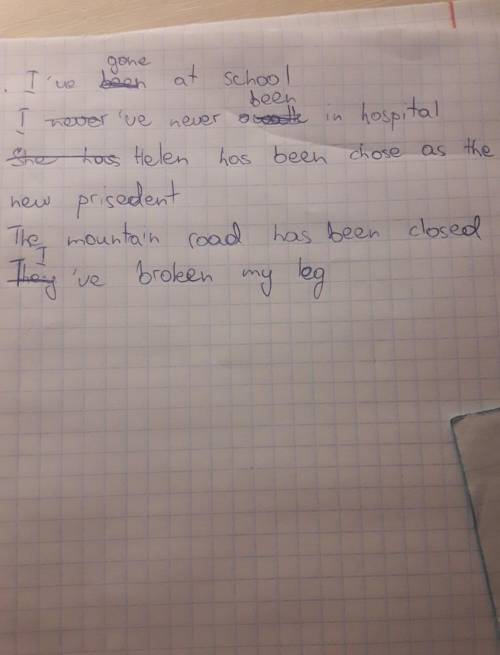 . I've gone at school
I 've never been in hospital
Helen has been chose as the
new prisedent
The mountain road has been closed
I 've broken my leg